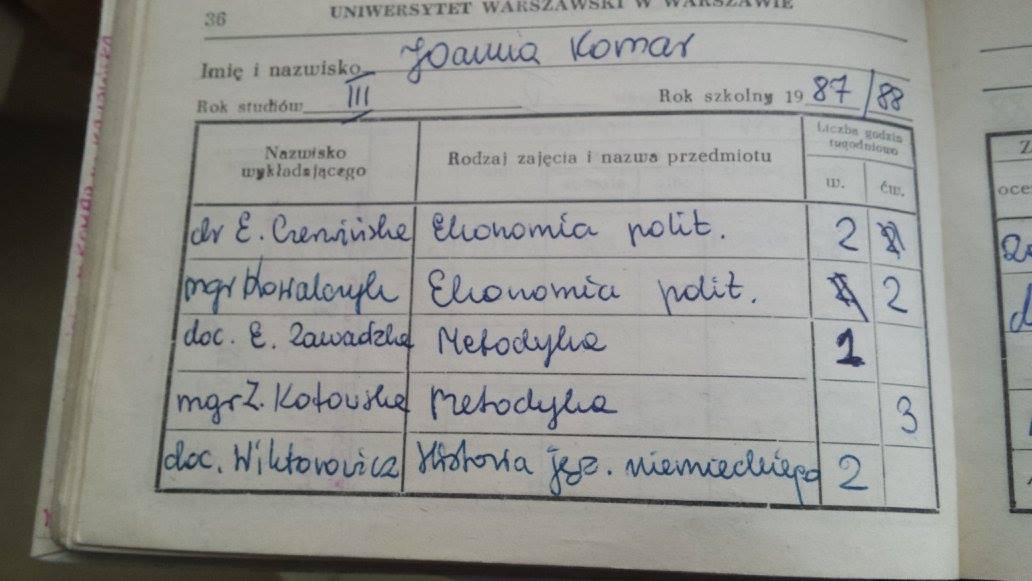 36
UNIWERSYTET WARSZAWSKI W WARSZAWIE
Imię i nazwisko Joanna Komar
Rok studiów III Rok szkolny 19 87/88
Nazwisko wykładającego Rodzaj zajęcia i nazwa przedmiotu Liczba godzin tygodniowo
w. ćw.
dr E. Czerwińska Ekonomia polit. 2
mgr Kowalczyk Ekonomia polit. 2
doc. E. Zawadzka Metodyka 1
mgr Z. Kotowska Metodyka 3
doc. Wiktorowicz Historia jęz. niemieckiego 2